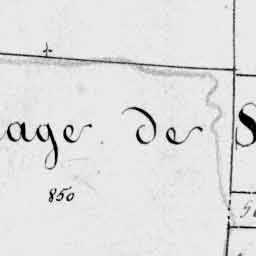 age de S
850